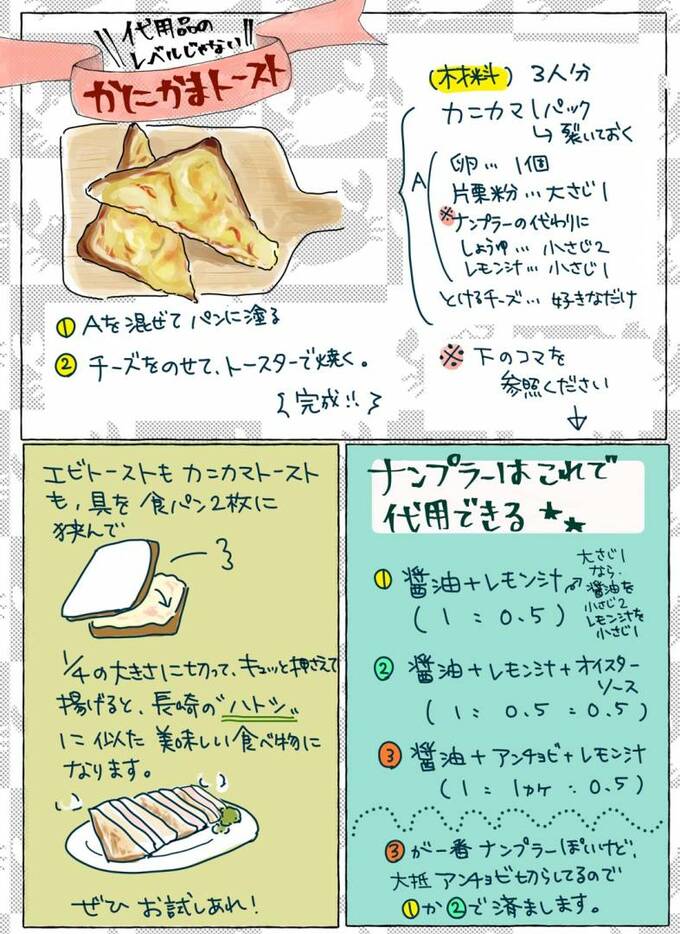 代用品の
レベルじゃない
かにかまトースト
(材料) 3人分
カニカマ1パック
↳裂いておく
A
卵… 1個
片栗粉…大さじ1
※ナンプラーの代わりに
しょうゆ… 小さじ2
レモン汁… 小さじ1
とけるチーズ… 好きなだけ
① Aを混ぜてパンに塗る
② チーズをのせて、トースターで焼く。
完成!!
※ 下のコマを
参照ください
↓
エビトーストも カニカマトースト
も、具を食パン2枚に
挟んで
1/4の大きさに切って、キュッと押さえて
揚げると、長崎の"ハトシ"
に似た美味しい食べ物に
なります。
ぜひ お試しあれ!
ナンプラーはこれで
代用できる
① 醤油+レモン汁
(1:0.5)
大さじ1
なら、
醤油を
小さじ2
レモン汁を
小さじ1
② 醤油+レモン汁+オイスター
ソース
(1:0.5:0.5)
③ 醤油+アンチョビ+レモン汁
(1:1カケ:0.5)
③が一番ナンプラーぽいけど、
大抵アンチョビ切らしてるので
①か②で済まします。